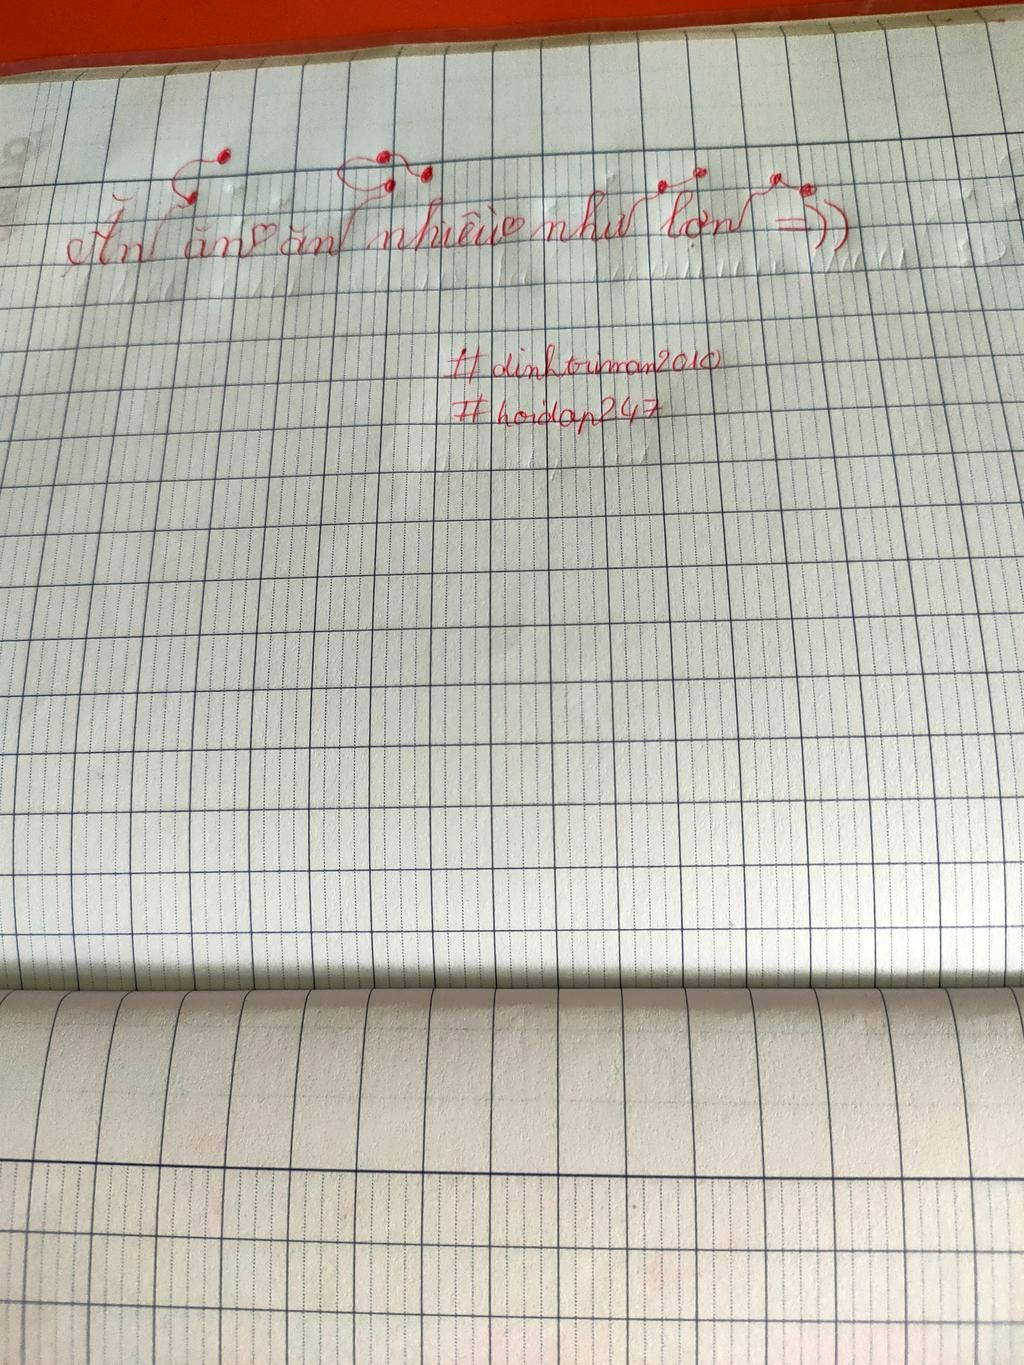 Ăn ăn ăn nhiều như lợn =))
#dinhtriman2010
#hoidap247